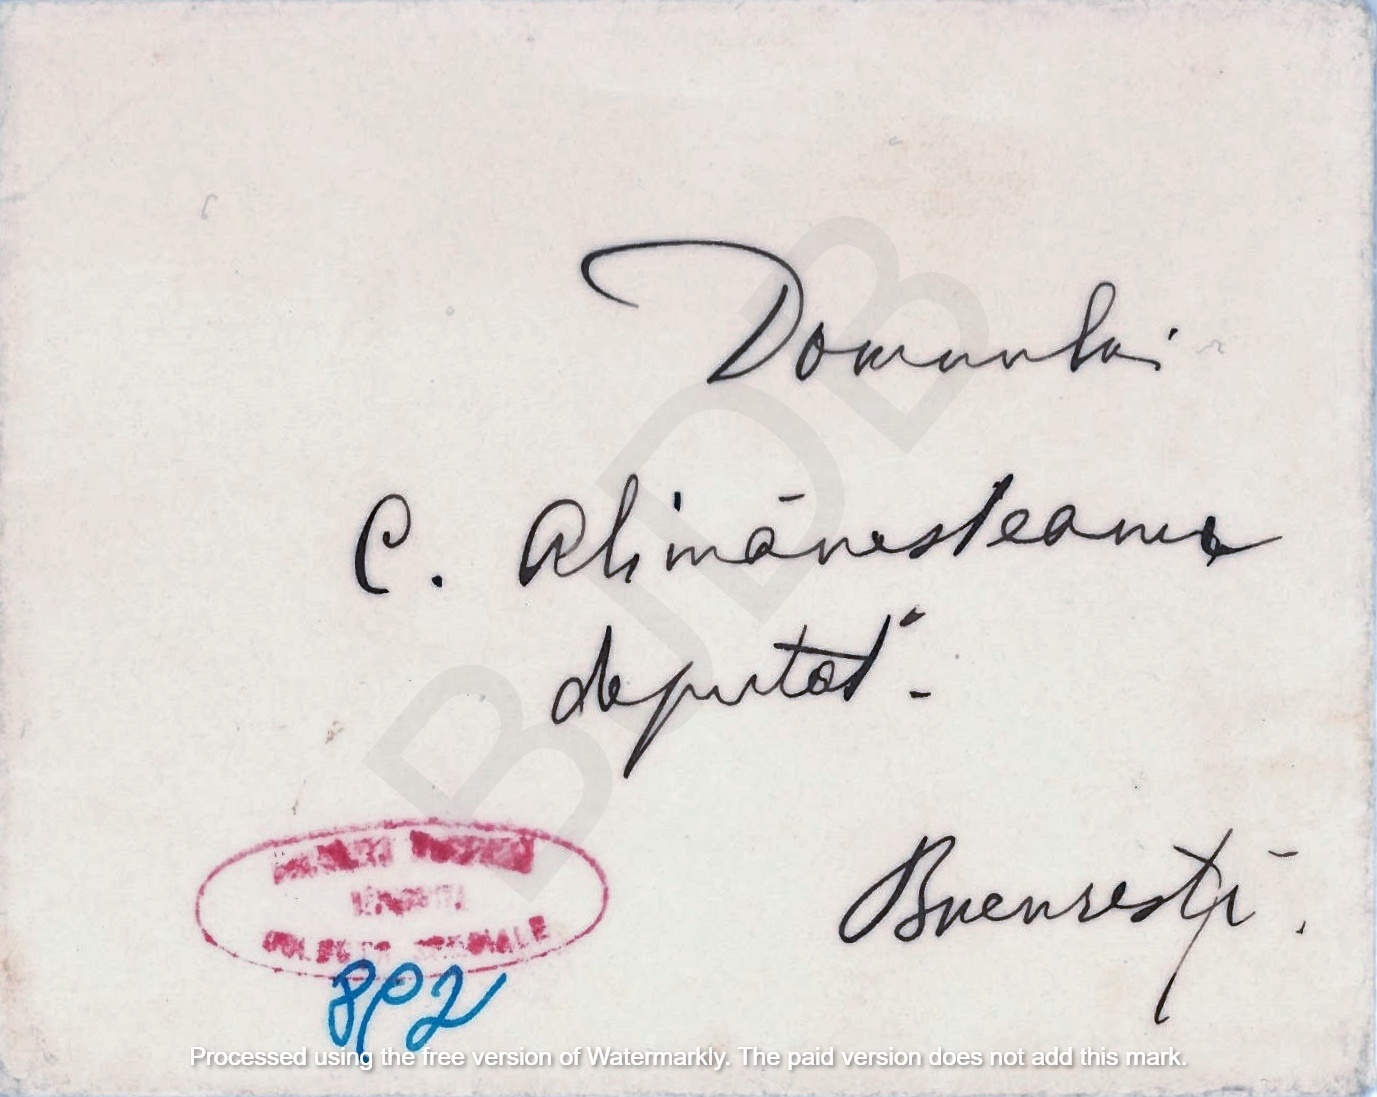 Domnului
C. Alimănesteanu
deputat.
Bucuresti.
COLECŢII SPECIALE
8P2
BJDB
Processed using the free version of Watermarkly. The paid version does not add this mark.